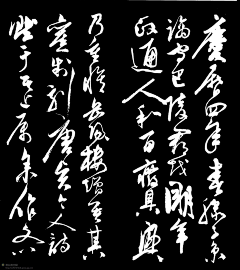 慶曆四年春滕子京
謫守巴陵郡越明年
政通人和百廢具興
乃重修岳陽樓增其
舊制刻唐賢今人詩
賦于其上属予作文以